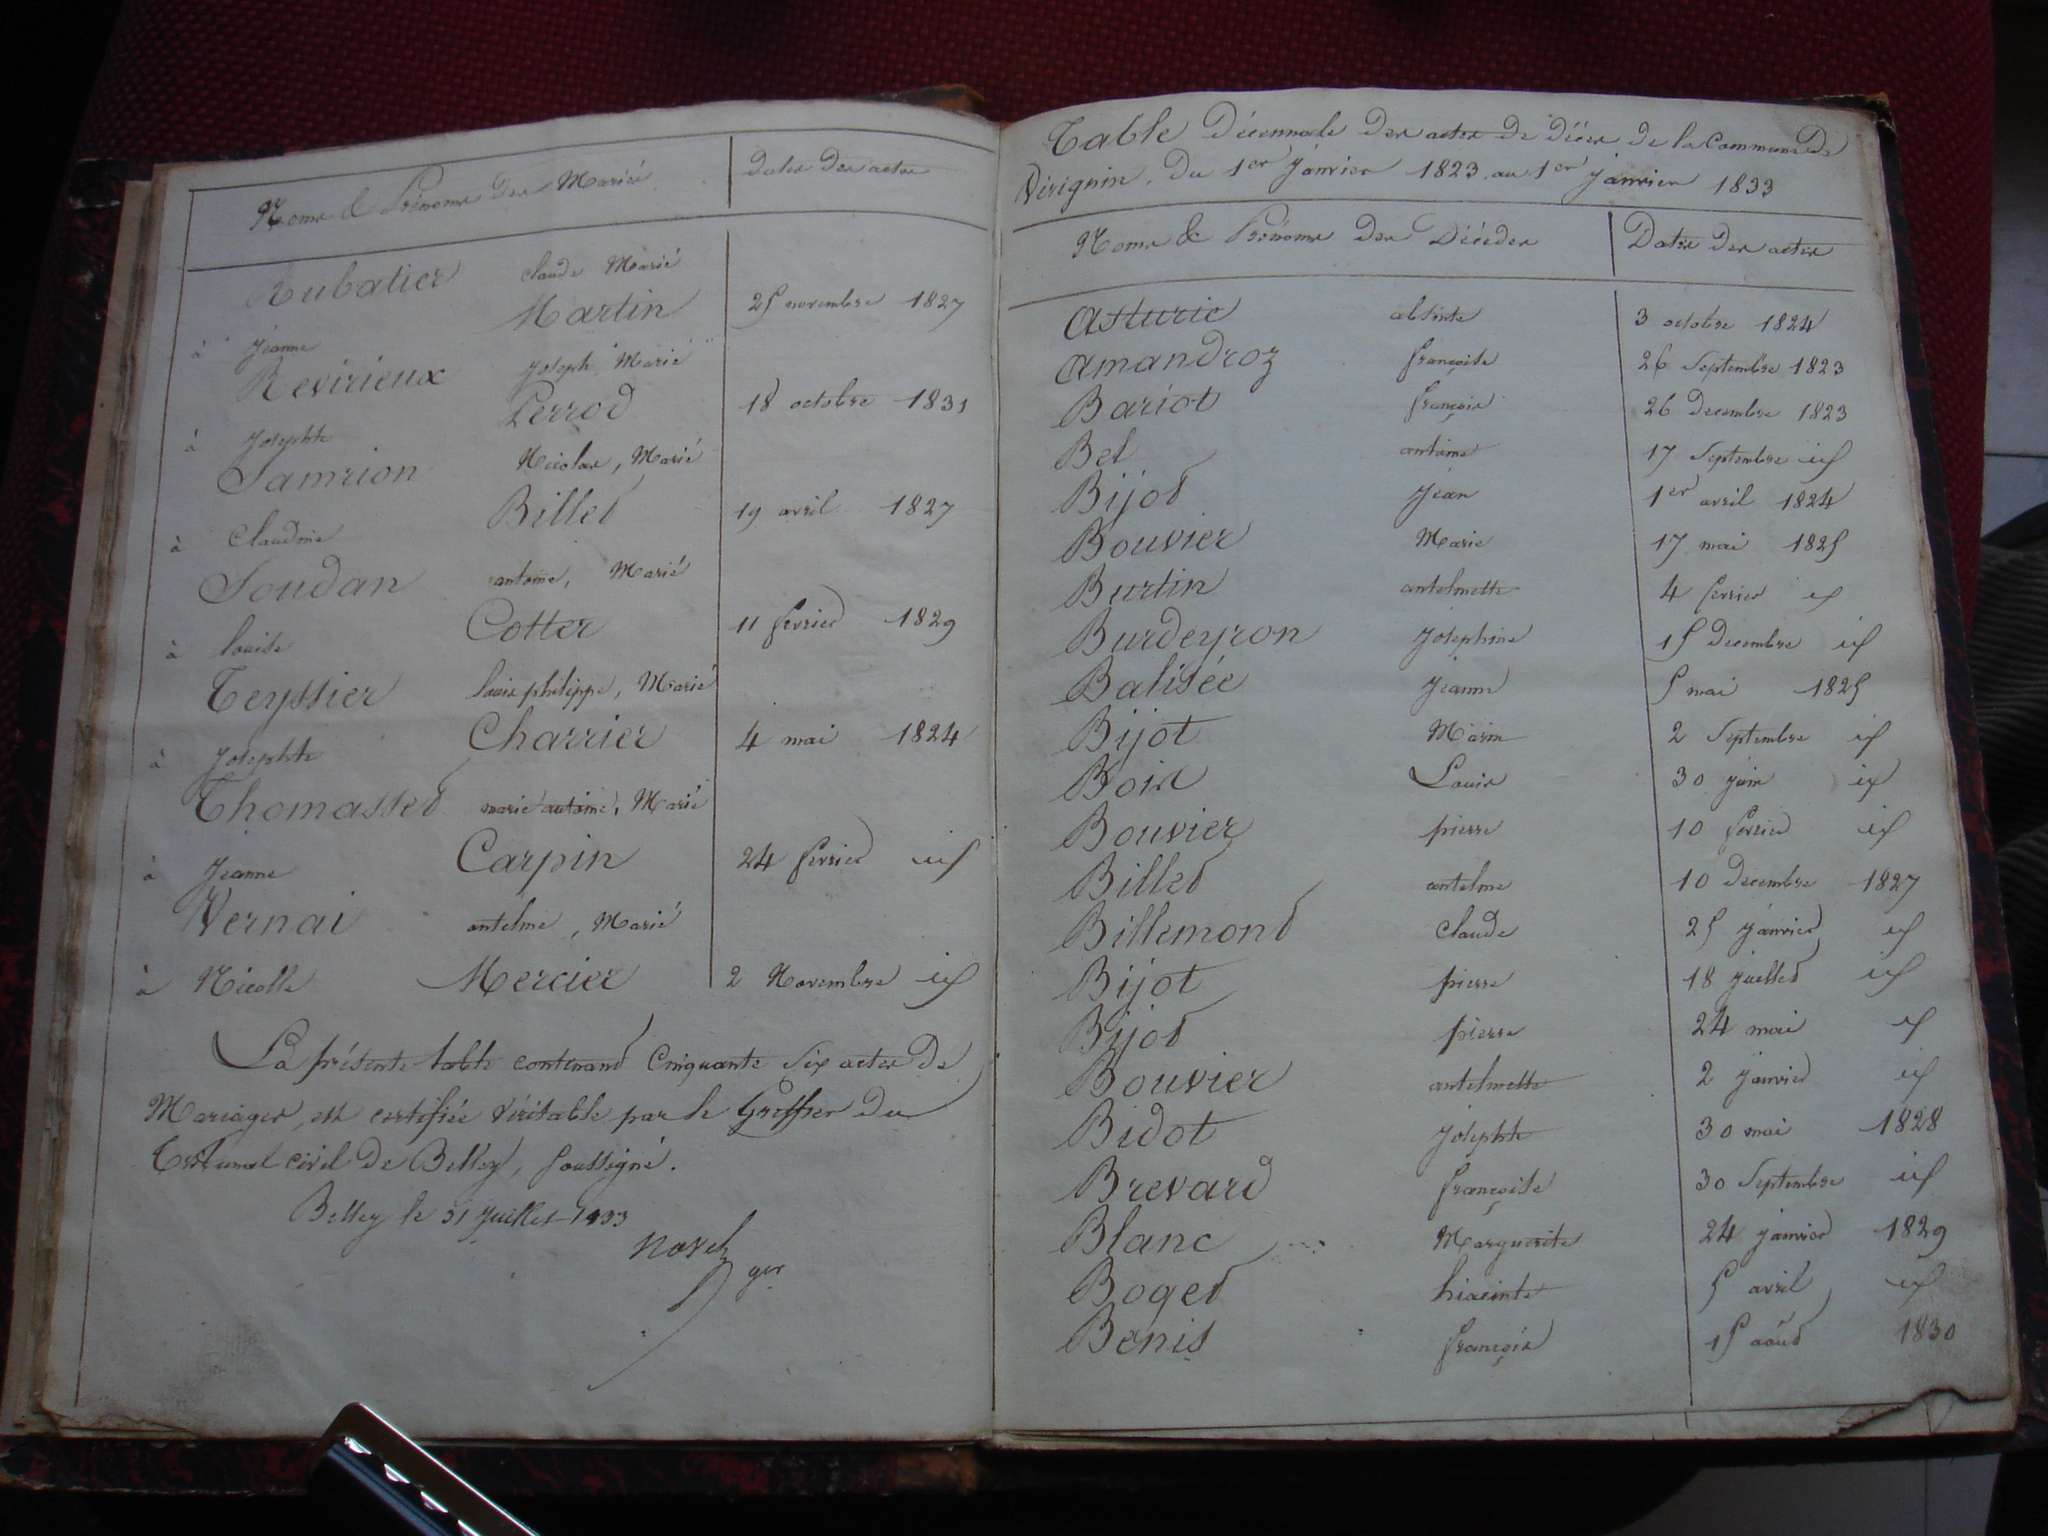 Noms & Prénoms des Mariés
Dates des actes
Rubatier claude Marié
à jeanne Martin 25 novembre 1827
Revirieux joseph Marié
à josephte Perrod 18 octobre 1831
Samrion Nicolas, Marié
à claudine Billet 19 avril 1827
Soudan antoine, Marié
à louise Cotter 11 fevrier 1829
Teyssier louis philippe, Marié
à josephte Charrier 4 mai 1824
Thomasset marie antoine, Marié
à jeanne Carpin 24 fevrier id
Vernai antelme, Marié
à Nicolle Mercier 2 Novembre id
La présente table contenant Cinquante Six actes de
Mariages, est certifiée Véritable par le Greffier du
Tribunal civil de Belley, soussigné.
Belley le 31 juillet 1833
ger
Table Décennale des actes de Décès de la Commune de
Virignin, du 1er janvier 1823 au 1er janvier 1833
Noms & Prénoms des Décédés Dates des actes
Asturic absinte 3 octobre 1824
Amandroz françoise 26 Septembre 1823
Bariot françois 26 Decembre 1823
Bel antoine 17 Septembre id
Bijot jean 1er avril 1824
Bouvier Marie 17 mai 1825
Burtin antelmette 4 fevrier id
Burdeyron josephine 15 Decembre id
Balisée jeanne 5 mai 1825
Bijot Marin 2 Septembre id
Bois Louis 30 juin id
Bouvier pierre 10 fevrier id
Billet antelme 10 Decembre 1827
Billemond claude 25 janvier id
Bijot pierre 18 juillet id
Bijot pierre 24 mai id
Bouvier antelmette 2 janvier id
Bidot josephte 30 mai 1828
Brevard françoise 30 Septembre id
Blanc Marguerite 24 janvier 1829
Boget hiacinte 5 avril id
Benis françois 15 août 1830